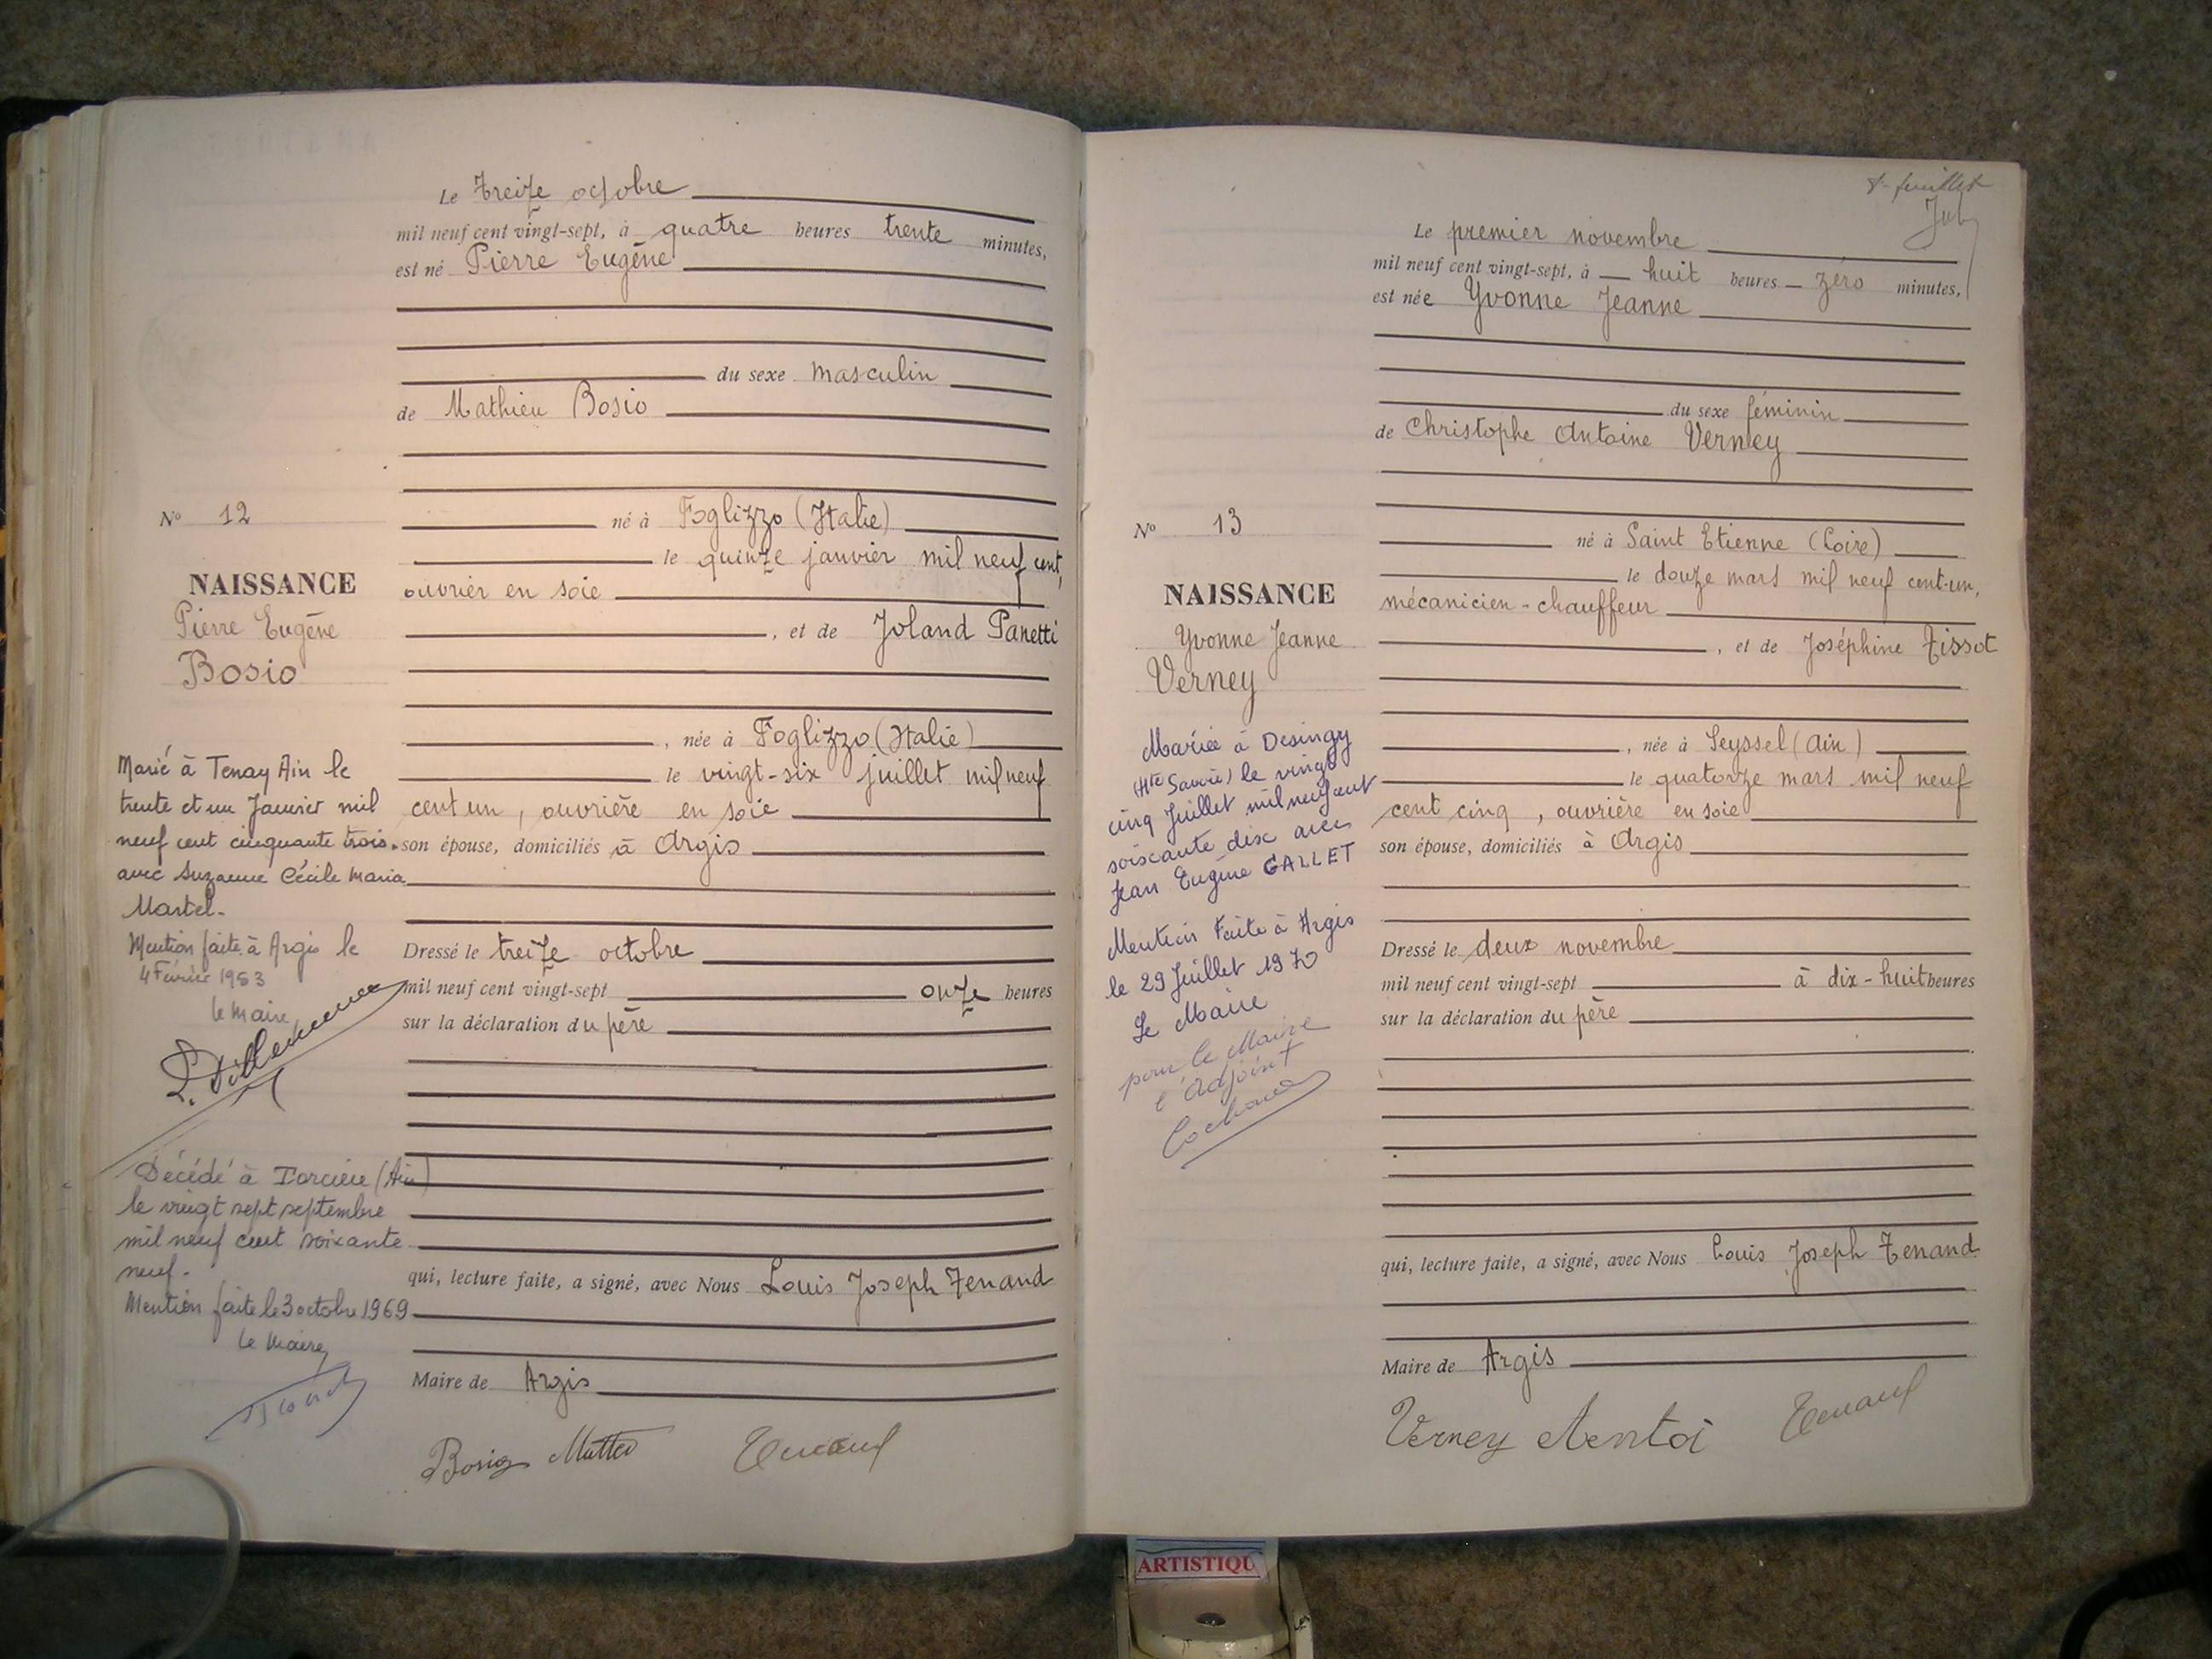 Le treize octobre
mil neuf cent vingt-sept, à quatre heures trente minutes,
est né Pierre Eugène
du sexe masculin
de Mathieu Bosio
né à Foglizzo (Italie)
le quinze janvier mil neuf cent,
ouvrier en soie
, et de Joland Panetti
, née à Foglizzo (Italie)
le vingt-six juillet mil neuf
cent un, ouvrière en soie
son épouse, domiciliés à Argis
Dressé le treize octobre
mil neuf cent vingt-sept onze heures
sur la déclaration du père
qui, lecture faite, a signé, avec Nous Louis Joseph Tenand
Maire de Argis
Bosio Matteo Tenand
No 12
NAISSANCE
Pierre Eugène
Bosio
Marié à Tenay Ain le
trente et un Janvier mil
neuf cent cinquante trois
avec Suzanne Cécile Maria
Martel.
Mention faite à Argis le
4 Février 1953
le maire,
Décédé à Torcieu (Ain)
le vingt sept septembre
mil neuf cent soixante
neuf.
Mention faite le 3 octobre 1969
le Maire,
feuillet
Le premier novembre
mil neuf cent vingt-sept, à huit heures zéro minutes,
est née Yvonne Jeanne
du sexe féminin
de Christophe Antoine Verney
né à Saint Etienne (Loire)
le douze mars mil neuf cent-un,
mécanicien-chauffeur
, et de Joséphine Tissot
, née à Seyssel (Ain)
le quatorze mars mil neuf
cent cinq, ouvrière en soie
son épouse, domiciliés à Argis
Dressé le deux novembre
mil neuf cent vingt-sept à dix-huit heures
sur la déclaration du père
qui, lecture faite, a signé, avec Nous Louis Joseph Tenand
Maire de Argis
Verney Tenand
No 13
NAISSANCE
Yvonne Jeanne
Verney
Mariée à Desingy
(Hte Savoie) le vingt
cinq Juillet mil neuf cent
soixante dix avec
Jean Eugène GALLET
Mention Faite à Argis
le 29 Juillet 1970
Le Maire
pour le Maire
l'Adjoint
ARTISTIQU